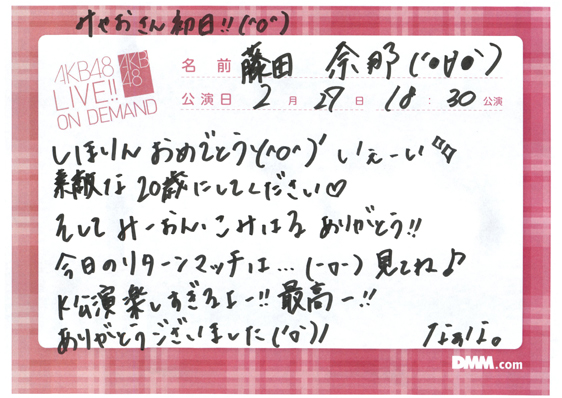 みゃおさん初日!!(^o^)
AKB48
LIVE!!
ON DEMAND
AKB48
名前 藤田 奈那(°∀°)
公演日 2月27日 18:30公演
しほりんおめでとう\(^o^)/いぇーい
素敵な20歳にしてください♡
そしてみーおん、こみはる ありがとう!!
今日のリターンマッチは…(-□-)見てね♪
K公演楽しすぎるよー!!最高ー!!
ありがとうございました(^o^)/
なぁな。
DMM.com